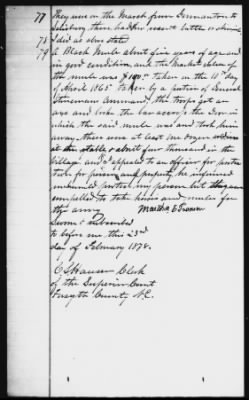 77 They were on the March from Germanton to
Salisbury there had been no battle or skirmish
78 I did not also state
79 A Black Mule about five years of age and
in good condition, and the Market value of
the mule was $140.00 taken on the 10th day
of April 1865 taken by a portion of General
Stoneman Command, the troops got an
axe and broke the bar across the Door in
which the said mule was and took him
away, there was at least one Dozen soldiers
at the stable & about four thousand in the
Village and I appealed to an officer for protec
tion for person and property, he informed
me he would protect my person but they were
compelled to take horses and mules for
the army
Martha E
Sworn & subscribed
to before me this 23rd
day of February 1878.
C S Hauser Clerk
of the Superior Court
Forsyth County N.C.